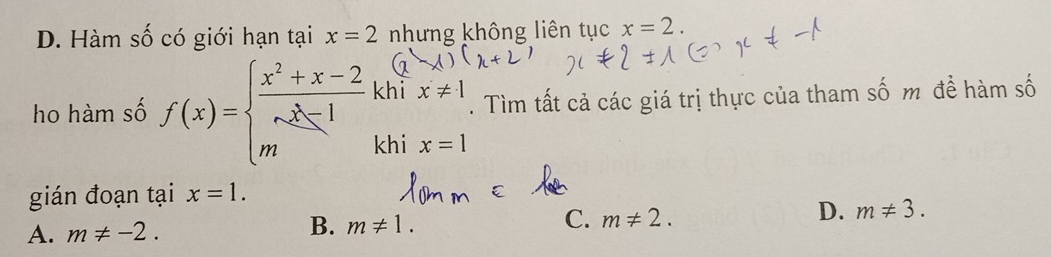 D. Hàm số có giới hạn tại x = 2 nhưng không liên tục x = 2.
(x-1)(x+2) x ≠ 2 ≠ 1 (=) x ≠ -1
ho hàm số f(x) = { (x² + x - 2)/(x - 1) khi x ≠ 1 . Tìm tất cả các giá trị thực của tham số m để hàm số
m khi x = 1
gián đoạn tại x = 1.
A. m ≠ -2. B. m ≠ 1. C. m ≠ 2. D. m ≠ 3.